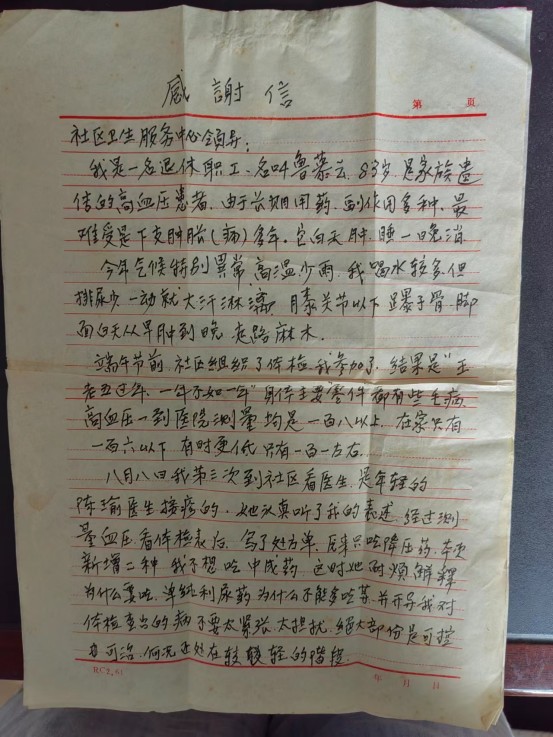 感謝信
第 页
社区卫生服务中心领导：
我是一名退休职工、名叫鲁慕云、83岁、是家族遗
传的高血压患者、由于长期用药、副作用多种、最
难受是下支肿胎(痛)多年、它白天肿、睡一晚消、
今年气候特别異常、高温少雨、我喝水较多、但
排尿少一动就大汗淋漓、膝关节以下踝子骨、脚
面白天从早肿到晚、走路麻木、
端午节前、社区组织了体检、我参加了、结果是“王
老五过年、一年不如一年”身体主要“零件”都有些毛病、
高血压一到医院测量均是一百八以上、在家只有
一百六以下、有时更低只有一百一左右、
八月八日我第三次到社区看医生、是年轻的
陈瑜医生接疹的、她认真听了我的表述、经过测
量血压、看体检表后、写了处方单、原来只吃降压药、
新增二种、我不想吃中成药、这时她耐烦解释
为什么要吃、单纯利尿药为什么不能多吃等、并开导我对
体检查出的病不要太紧张、太担扰、绝大部份是可控
可治、何况还处在较轻的階段、
年 月 日